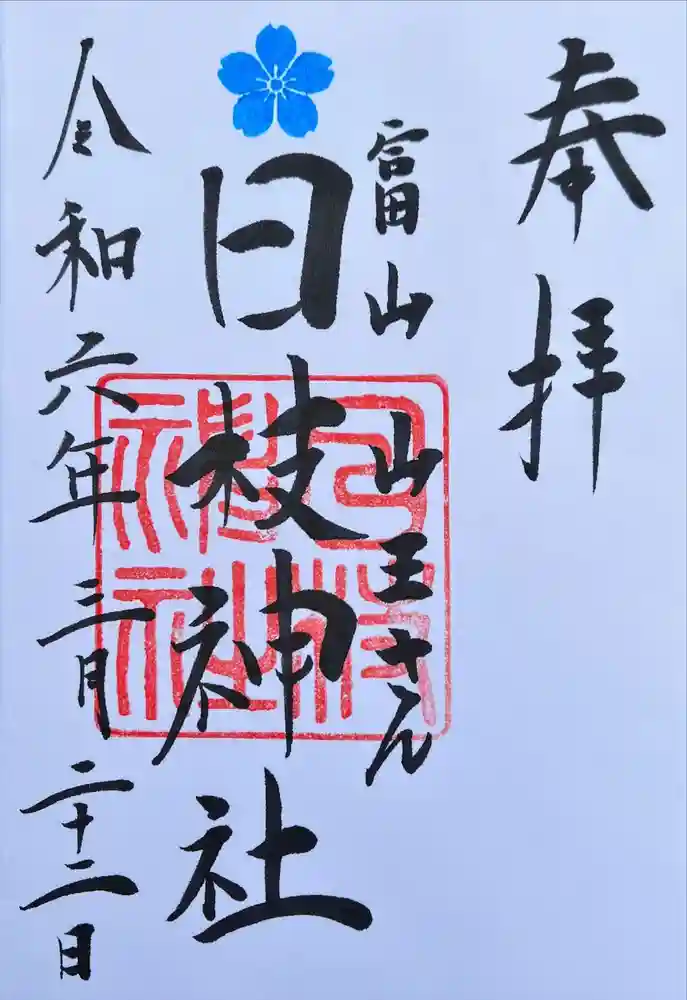 奉拝
富山山王さん
日枝神社
令和六年三月二十二日
日枝神社